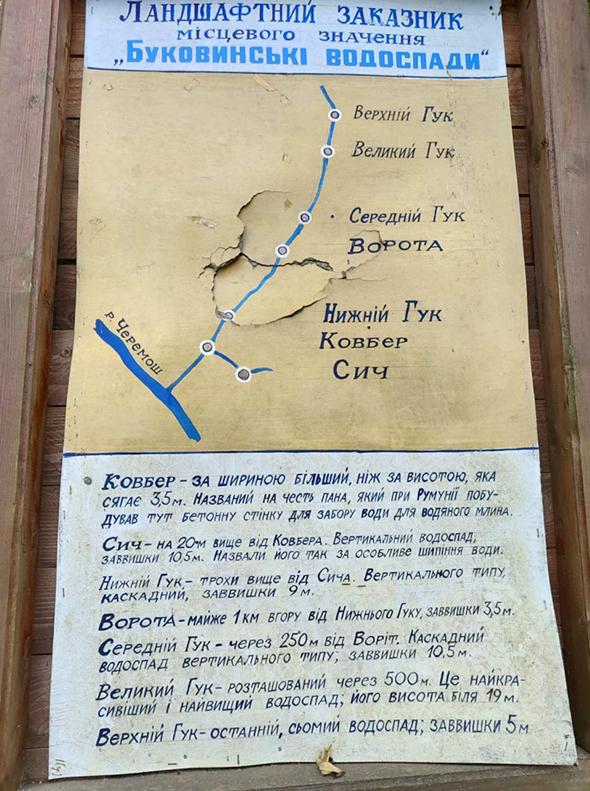 Ландшафтний заказник
місцевого значення
„Буковинські водоспади"
Верхній Гук
Великий Гук
Середній Гук
Ворота
Нижній Гук
Ковбер
Сич
р. Черемош
Ковбер – за шириною більший, ніж за висотою, яка
сягає 3,5 м. Названий на честь пана, який при Румунії побу-
дував тут бетонну стінку для забору води для водяного млина.
Сич – на 20 м вище від Ковбера. Вертикальний водоспад,
заввишки 10,5 м. Назвали його так за особливе шипіння води.
Нижній Гук – трохи вище від Сича. Вертикального типу,
каскадний, заввишки 9 м.
Ворота – майже 1 км вгору від Нижнього Гуку, заввишки 3,5 м.
Середній Гук – через 250 м від Воріт. Каскадний
водоспад вертикального типу, заввишки 10,5 м.
Великий Гук – розташований через 500 м. Це найкра-
сивіший і найвищий водоспад; його висота біля 19 м.
Верхній Гук – останній, сьомий водоспад; заввишки 5 м